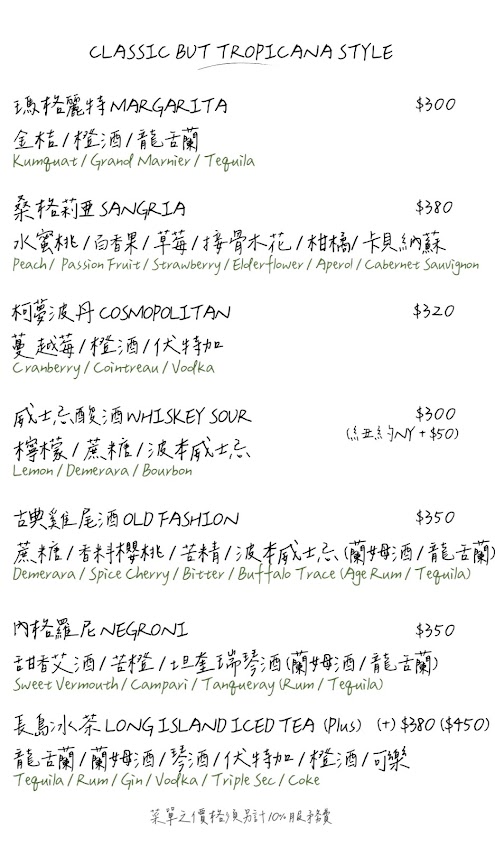 CLASSIC BUT TROPICANA STYLE
瑪格麗特 MARGARITA $300
金桔 / 橙酒 / 龍舌蘭
Kumquat / Grand Marnier / Tequila
桑格莉亞 SANGRIA $380
水蜜桃 / 百香果 / 草莓 / 接骨木花 / 柑橘 / 卡貝納蘇
Peach / Passion Fruit / Strawberry / Elderflower / Aperol / Cabernet Sauvignon
柯夢波丹 COSMOPOLITAN $320
蔓越莓 / 橙酒 / 伏特加
Cranberry / Cointreau / Vodka
威士忌酸酒 WHISKEY SOUR $300
(紐約NY + $50)
檸檬 / 蔗糖 / 波本威士忌
Lemon / Demerara / Bourbon
古典雞尾酒 OLD FASHION $350
蔗糖 / 香料櫻桃 / 苦精 / 波本威士忌 (蘭姆酒 / 龍舌蘭)
Demerara / Spice Cherry / Bitter / Buffalo Trace (Age Rum / Tequila)
內格羅尼 NEGRONI $350
甜香艾酒 / 苦橙 / 坦奎瑞琴酒 (蘭姆酒 / 龍舌蘭)
Sweet Vermouth / Campari / Tanqueray (Rum / Tequila)
長島冰茶 LONG ISLAND ICED TEA (Plus) (+) $380 ($450)
龍舌蘭 / 蘭姆酒 / 琴酒 / 伏特加 / 橙酒 / 可樂
Tequila / Rum / Gin / Vodka / Triple Sec / Coke
菜單之價格須另計10%服務費